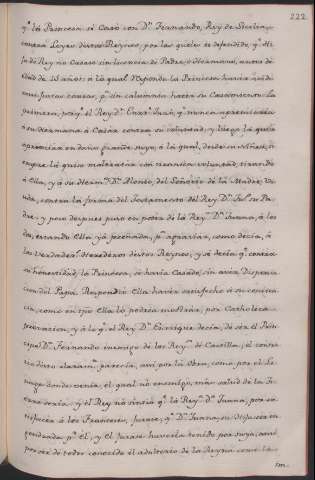 222
qᵉ la Princesa se Casò con Dⁿ Fernando, Rey de Sicilia,
contra Leyes destos Reynos, por las quales es defendido, qᵉ Hi-
ja de Rey no Casase sin licencia de Padre, ò Hermano, menor de
edad de 25 años: à la qual Respondia la Princesa havia tenido
mui justas causas, pª sin calumnia hacer su Casamiento: La
primera, porqᵉ el Rey Dⁿ Enrrᵉ Juró, qᵉ nunca apremiaria
à su Hermana à Casar contra su voluntad, y luego la quiso
apremiar en daño grande suyo, à la qual, desde su niñez, si-
empre la quiso maltratar con siniestra voluntad, tirando
à ella, y à su Hermº Dⁿ Alonso, del Señorio de la Madre, Viu-
da, contra la forma del Testamento del Rey Dⁿ Juº su Pa-
dre, y poco despues puso en poder de la Reyª Dª Juana, à los
dos, estando Ella ya preñada, pª agraviar, como decia, à
los Verdaderos Herederos destos Reynos; y se decia qᵉ contra
su honestidad, la Princesa, se havia Casado, sin aver Dispensa-
cion del Papa. Respondiò Ella haver satisfecho à su concien-
cia, como en tpo Ella lo podria mostrar, por Catholica
provacion, y à lo qᵉ el Rey Dⁿ Enrrique decia, de ser el Prin-
cipe Dⁿ Fernando enemigo de los Reyˢ de Castilla, el contra-
rio desto claramᵗᵉ parecia, assi por la Obra, como por el Li-
nage donde venia, el qual no enemigo, mas salud de la tie-
rra seria: y el Rey no sinviò qᵉ la Reyª Dª Juana, por sa-
tisfacer à los Franceses, Jurase, qᵉ Dª Juana, su Hija fuese en-
gendrada pʳ èl, y el Jurase haverla tenido por suya, assi
por ser de todos conocido el adulterio de la Reyna como la
im-